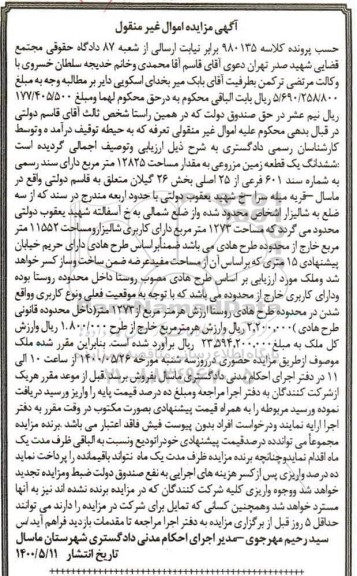 آگهی مزایده اموال غیر منقول
حسب پرونده کلاسه ۹۸۰۱۳۵ برابر نیابت ارسالی از شعبه ۸۷ دادگاه حقوقی مجتمع
قضایی شهید صدر تهران دعوی آقای قاسم آقا محمدی وخانم خدیجه سلطان خسروی با
وکالت مرتضی ترکمن بطرفیت آقای بابک میر بخدای اسکویی دایر بر مطالبه وجه به مبلغ
۵/۶۹۰/۲۵۸/۸۰۰ ریال بابت الباقی محکوم به درحق محکوم لهما ومبلغ ۱۷۷/۴۰۵/۵۰۰
ریال نیم عشر در حق صندوق دولت که در همین راستا شخص ثالث آقای قاسم دولتی
در قبال بدهی محکوم علیه اموال غیر منقولی تعرفه که به حیطه توقیف درآمده وتوسط
کارشناسان رسمی دادگستری به شرح ذیل ارزیابی وتوصیف اجمالی گردیده است
:ششدانگ یک قطعه زمین مزروعی به مقدار مساحت ۱۲۸۲۵ متر مربع دارای سند رسمی
به شماره سند ۶۰۱ فرعی از ۲۵ اصلی بخش ۲۶ گیلان متعلق به قاسم دولتی واقع در
ماسال –قریه مله سرا–خ شهید یعقوب دولتی با حدود اربعه مندرج در سند که از سه
ضلع به شالیزار اشخاص محدود شده واز ضلع شمالی به خ آسفالته شهید یعقوب دولتی
محدود می گردد که مساحت ۱۲۷۳ متر مربع دارای کاربری شالیزار ومساحت ۱۱۵۵۲ متر
مربع خارج از محدوده طرح هادی می باشد ضمنا براساس طرح هادی دارای حریم خیابان
پیشنهادی ۱۵ متری که بر اساس آن از مساحت مفید عرصه ضمن ساخت وساز کسر خواهد
شد وملک مورد ارزیابی بر اساس طرح هادی مصوب روستا داخل محدوده روستا بوده
ودارای کاربری خارج از محدوده می باشد که با توجه به موقعیت فعلی ونوع کاربری وواقع
شدن در محدوده طرح هادی روستا ارزش هر متر مربع از ۱۲۷۳ متر(داخل محدوده قانونی
طرح هادی )۲,۲۰۰,۰۰۰ ریال وارزش هر متر مربع خارج از طرح ۱,۸۰۰,۰۰۰ ریال وارزش
کل ملک به مبلغ ۲۳,۵۹۴,۲۰۰,۰۰۰ ریال برآورد شده است. بنابراین مقرر شده ملک
موصوف از طریق مزایده حضوری در روز سه شنبه مورخه ۱۴۰۰/۰۵/۲۶ از ساعت ۱۰ الی
۱۱ در دفتر اجرای احکام مدنی دادگستری ماسال بفروش برسد. قبل از موعد مقرر هریک
از شرکت کنندگان به دفتر اجرا مراجعه ومبلغ ده درصد قیمت پایه را واریز ورسید دریافت
نموده ورسید مربوطه را به همراه قیمت پیشنهادی بصورت مکتوب در وقت مقرر به دفتر
اجرا ارایه نمایند ودرخواست افراد بدون پیوست فیش فاقد اعتبار می باشد. برنده مزایده
مجموعاً می تواند ده درصد قیمت پیشنهادی خود را تودیع ونسبت به الباقی ظرف مدت یک
ماه اقدام نماید وچنانچه برنده مزایده ظرف مدت یک ماه نتواند باقیمانده را پرداخت نماید
ده درصد واریزی پس از کسر هزینه های اجرایی به نفع صندوق دولت ضبط ومزایده تجدید
خواهد شد ووجوه واریزی کلیه شرکت کنندگان که در مزایده برنده نشده اند نیز به آنها
مسترد خواهد شد وهمچنین کسانی که تمایل برای شرکت در مزایده را دارند می توانند
حداقل ۵ روز قبل از برگزاری مزایده به دفتر اجرا مراجعه تا مقدمات بازدید فراهم آید/س
سید رحیم مهرجوی –مدیر اجرای احکام مدنی دادگستری شهرستان ماسال
تاریخ انتشار ۱۴۰۰/۵/۱۱